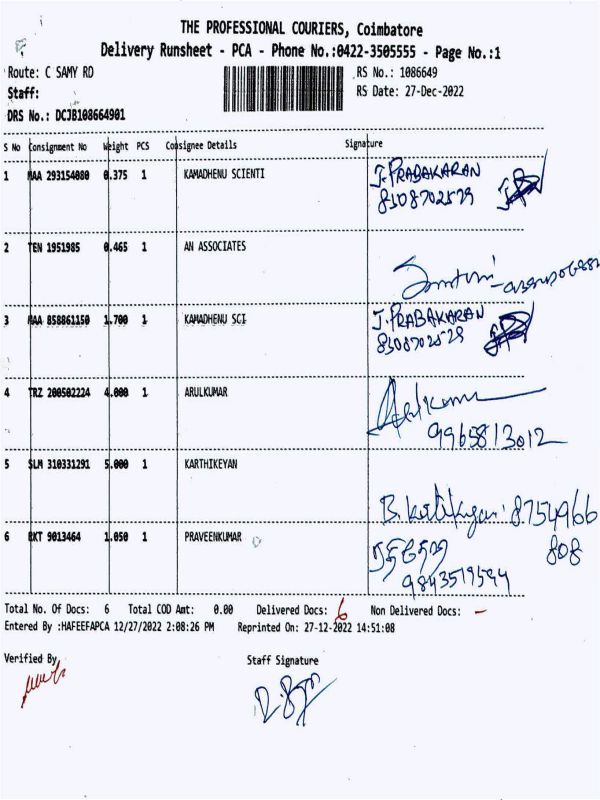 THE PROFESSIONAL COURIERS, Coimbatore
Delivery Runsheet - PCA - Phone No.:0422-3505555 - Page No.:1
Route: C SAMY RD
RS No.: 1086649
Staff:
RS Date: 27-Dec-2022
DRS No.: DCJB108664901
S No Consignment No Weight PCS Consignee Details Signature
1 MAA 293154080 0.375 1 KAMADHENU SCIENTI J.PRABAKARAN
8308702529
2 TEN 1951985 0.465 1 AN ASSOCIATES
3 MAA 858861150 1.700 1 KAMADHENU SCI J.PRABAKARAN
8308702529
4 TRZ 200502224 4.000 1 ARULKUMAR Arulkumar
9965813012
5 SLM 310331291 5.000 1 KARTHIKEYAN
B. 8754966
808
6 KKT 9013464 1.050 1 PRAVEENKUMAR
9843519594
Total No. Of Docs: 6 Total COD Amt: 0.00 Delivered Docs: 6 Non Delivered Docs: -
Entered By :HAFEEFAPCA 12/27/2022 2:08:26 PM Reprinted On: 27-12-2022 14:51:08
Verified By
Staff Signature